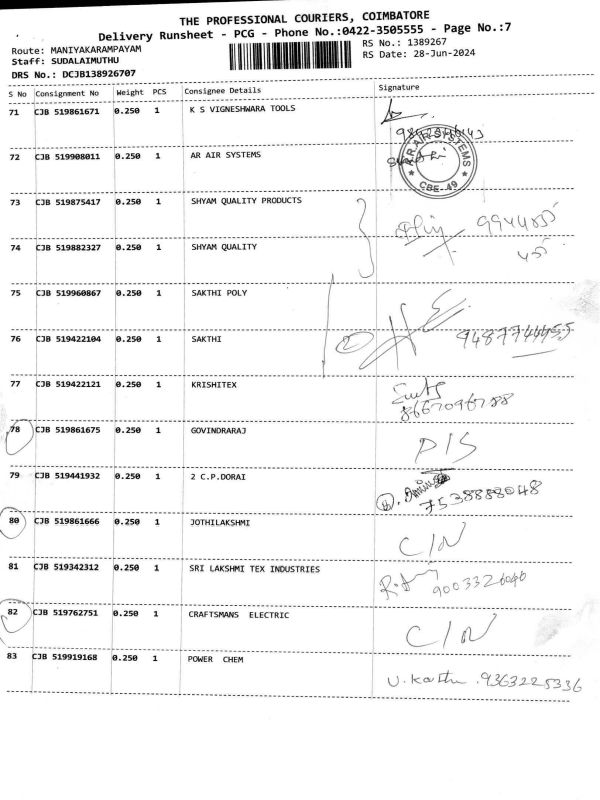 THE PROFESSIONAL COURIERS, COIMBATORE
Delivery Runsheet - PCG - Phone No.:0422-3505555 - Page No.:7
Route: MANIYAKARAMPAYAM
RS No.: 1389267
Staff: SUDALAIMUTHU
RS Date: 28-Jun-2024
DRS No.: DCJB138926707
S No Consignment No Weight PCS Consignee Details Signature
71 CJB 519861671 0.250 1 K S VIGNESHWARA TOOLS
72 CJB 519908011 0.250 1 AR AIR SYSTEMS
AR AIR SYSTEMS
★ CBE-49 ★
73 CJB 519875417 0.250 1 SHYAM QUALITY PRODUCTS
74 CJB 519882327 0.250 1 SHYAM QUALITY
75 CJB 519960867 0.250 1 SAKTHI POLY
76 CJB 519422104 0.250 1 SAKTHI 2 9487744455
77 CJB 519422121 0.250 1 KRISHITEX
8667096788
78 CJB 519861675 0.250 1 GOVINDRARAJ D/S
79 CJB 519441932 0.250 1 2 C.P.DORAI
7538888048
80 CJB 519861666 0.250 1 JOTHILAKSHMI C/N
81 CJB 519342312 0.250 1 SRI LAKSHMI TEX INDUSTRIES
9003326040
82 CJB 519762751 0.250 1 CRAFTSMANS ELECTRIC C/N
83 CJB 519919168 0.250 1 POWER CHEM
9363225336